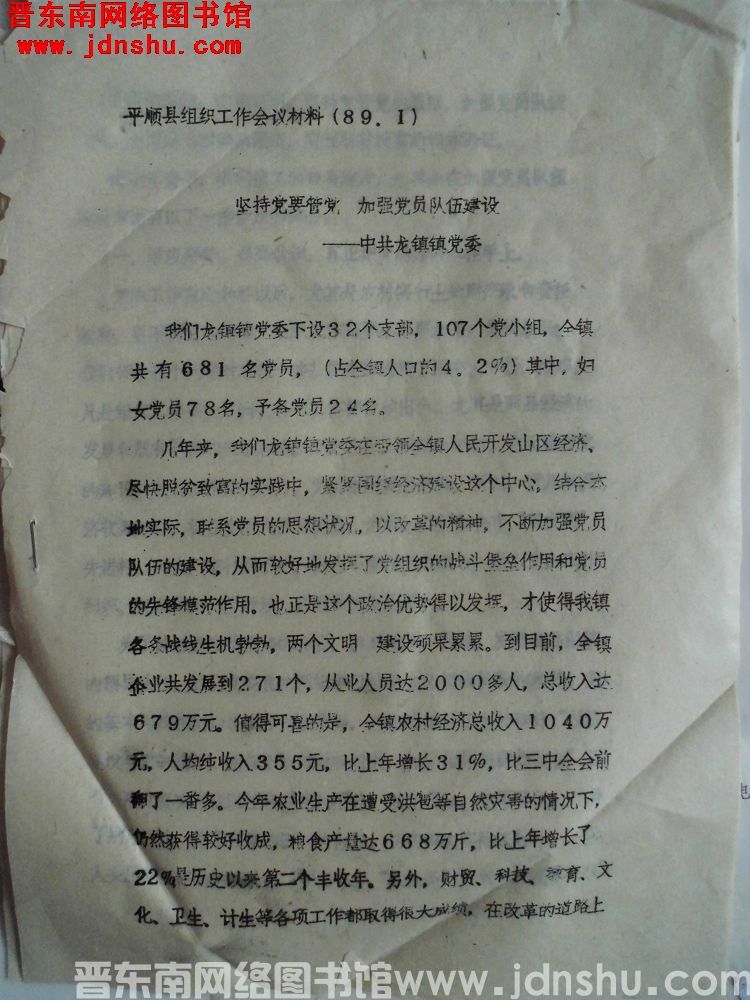 晋东南网络图书馆
www.jdnshu.com
平顺县组织工作会议材料（89．1）
坚持党要管党　加强党员队伍建设
——中共龙镇镇党委
我们龙镇镇党委下设32个支部，107个党小组，全镇
共有681名党员，（占全镇人口的4。2%）其中，妇
女党员78名，予备党员24名。
几年来，我们龙镇镇党委在带领全镇人民开发山区经济、
尽快脱贫致富的实践中，紧紧围绕经济建设这个中心，结合本
地实际，联系党员的思想状况，以改革的精神，不断加强党员
队伍的建设，从而较好地发挥了党组织的战斗堡垒作用和党员
的先锋模范作用。也正是这个政治优势得以发挥，才使得我镇
各条战线生机勃勃，两个文明　建设硕果累累。到目前，全镇
企业共发展到271个，从业人员达2000多人，总收入达
679万元。值得可喜的是，全镇农村经济总收入1040万
元，人均纯收入355元，比上年增长31%，比三中全会前
翻了一番多。今年农业生产在遭受洪雹等自然灾害的情况下，
仍然获得较好收成，粮食产量达668万斤，比上年增长了
22%是历史以来第二个丰收年。另外，财贸、科技、教育、文
化、卫生、计生等各项工作都取得很大成绩，在改革的道路上
晋东南网络图书馆 www.jdnshu.com